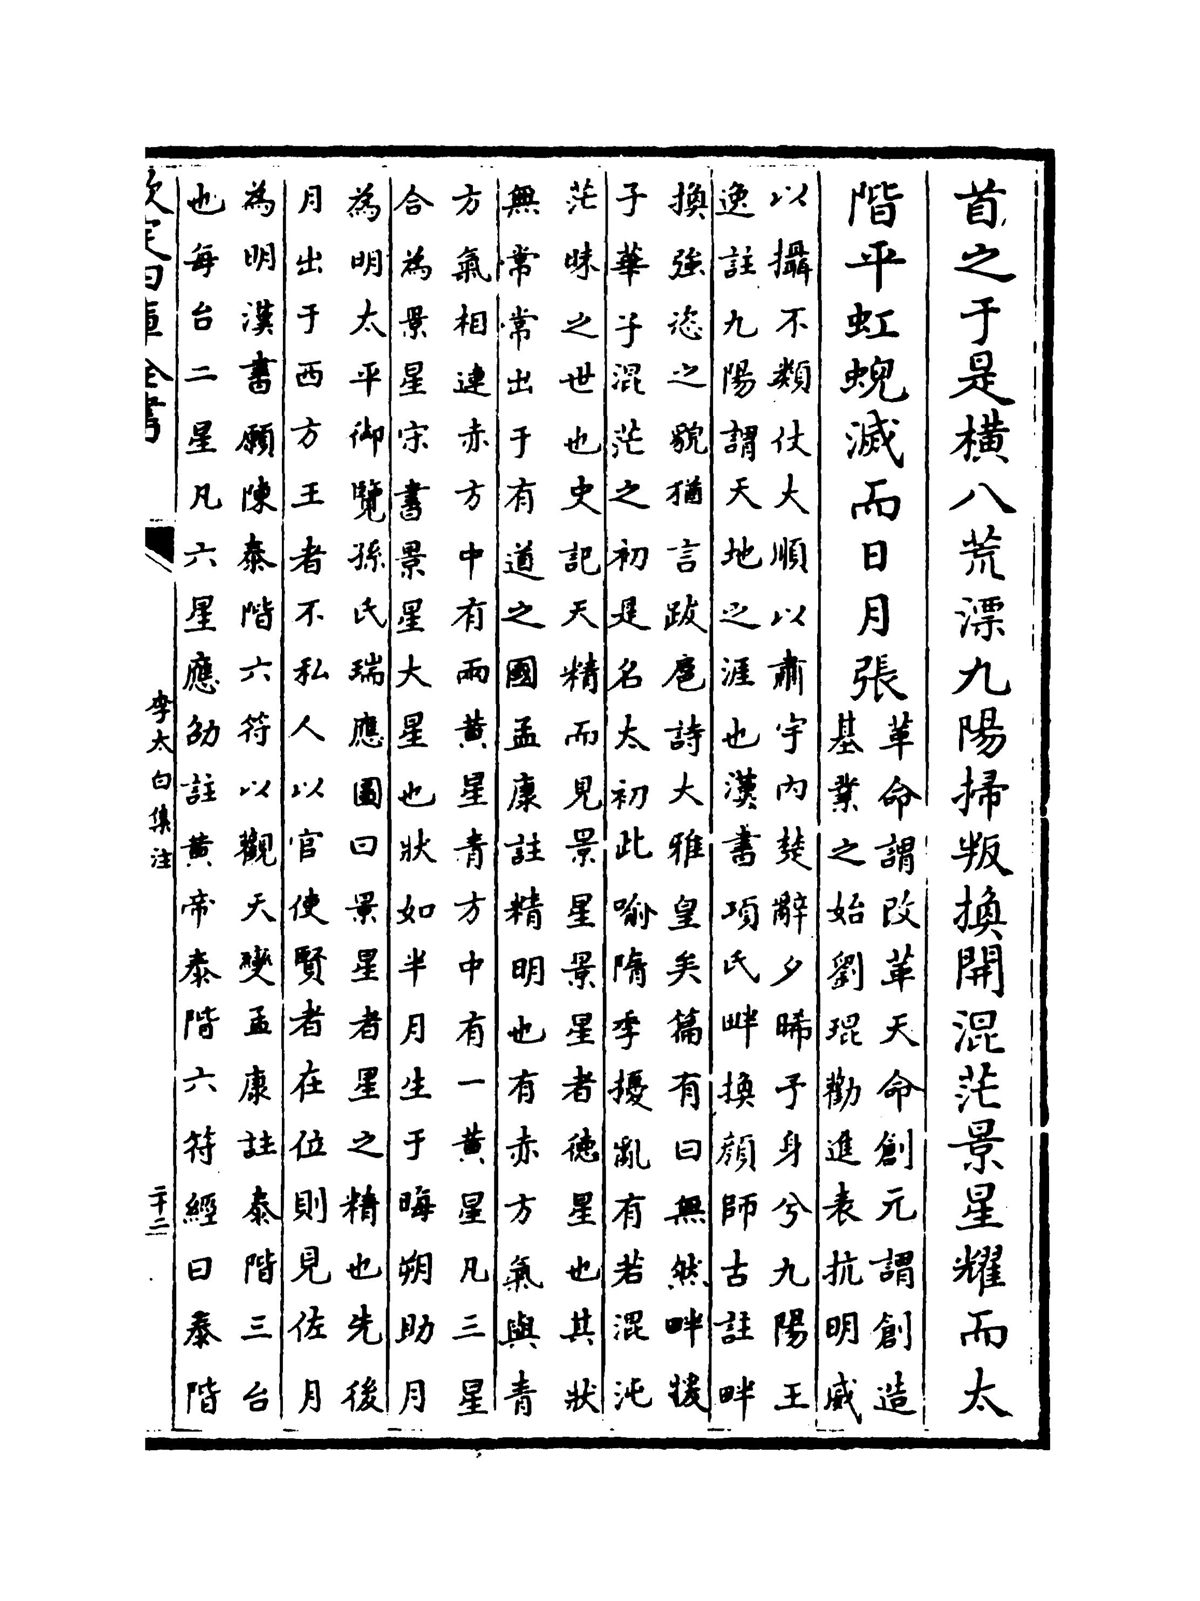 首之于是橫八荒漂九陽掃叛換開混茫景星耀而太
階平虹蜺滅而日月張
革命謂改革天命創元謂創造
基業之始劉琨勸進表抗明威
以攝不類仗大順以肅宇内楚辭夕晞予身兮九陽王
逸註九陽謂天地之涯也漢書項氏畔換顔師古註畔
換強恣之貌猶言跋扈詩大雅皇矣篇有曰無然畔援
子華子混茫之初是名太初此喻隋季擾亂有若混沌
茫昧之世也史記天精而見景星景星者徳星也其狀
無常常出于有道之國孟康註精明也有赤方氣與青
方氣相連赤方中有兩黄星青方中有一黄星凡三星
合為景星宋書景星大星也狀如半月生于晦朔助月
為明太平御覽孫氏瑞應圖曰景星者星之精也先後
月出于西方王者不私人以官使賢者在位則見佐月
為明漢書願陳泰階六符以觀天變孟康註泰階三台
也每台二星凡六星應劭註黄帝泰階六符經曰泰階
欽定四庫全書
李太白集注
二十二